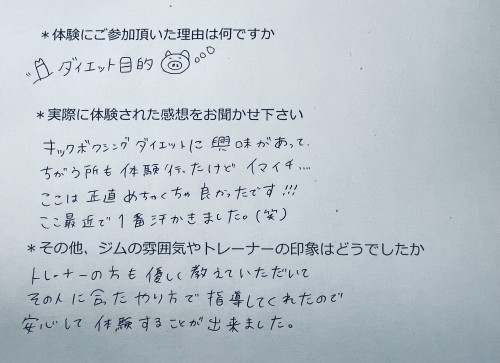 ＊体験にご参加頂いた理由は何ですか
ダイエット目的
＊実際に体験された感想をお聞かせ下さい
キックボクシングダイエットに興味があって、
ちがう所も体験行ったけどイマイチ....
ここは正直めちゃくちゃ良かったです!!!
ここ最近で1番汗かきました。(笑)
＊その他、ジムの雰囲気やトレーナーの印象はどうでしたか
トレーナーの方も優しく教えていただいて
その人に合ったやり方で指導してくれたので
安心して体験することが出来ました。